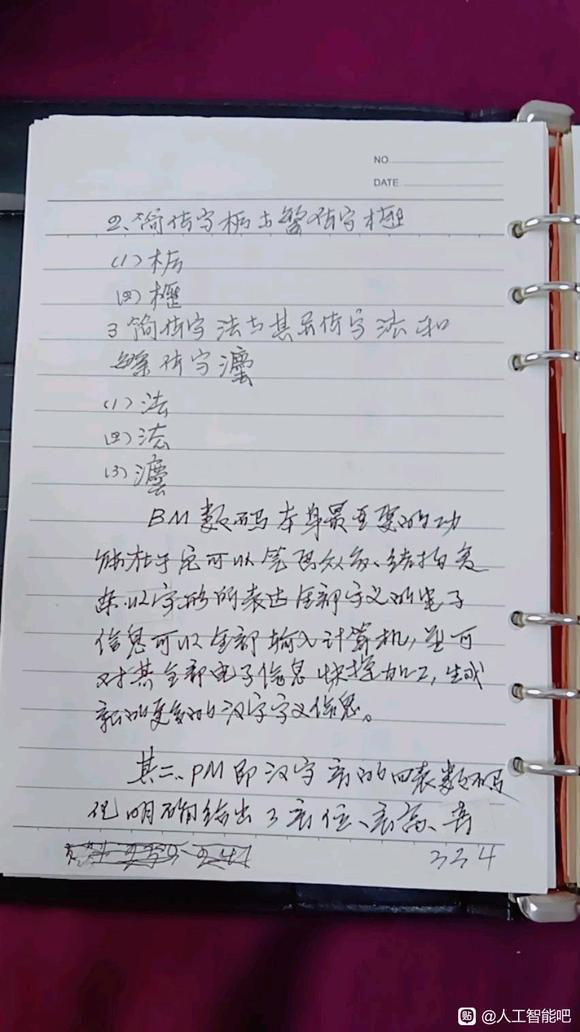 NO
DATE
2、简体字柜与繁体字櫃
(1)柜
(四)櫃
3 简体字法与其异体字法和
繁体字灋
(1)法
(四)法
(3)灋
BM数码本身最重要的功
能在于它可以笔画众多、结构复
杂以字形所表达全部字义的电子
信息可以全部输入计算机,并可
对其全部电子信息快捷加工,生成
新的更多的汉字字义信息。
其二、PM即汉字音的四表数码
化明确给出了音位、音高、音
334
@人工智能吧